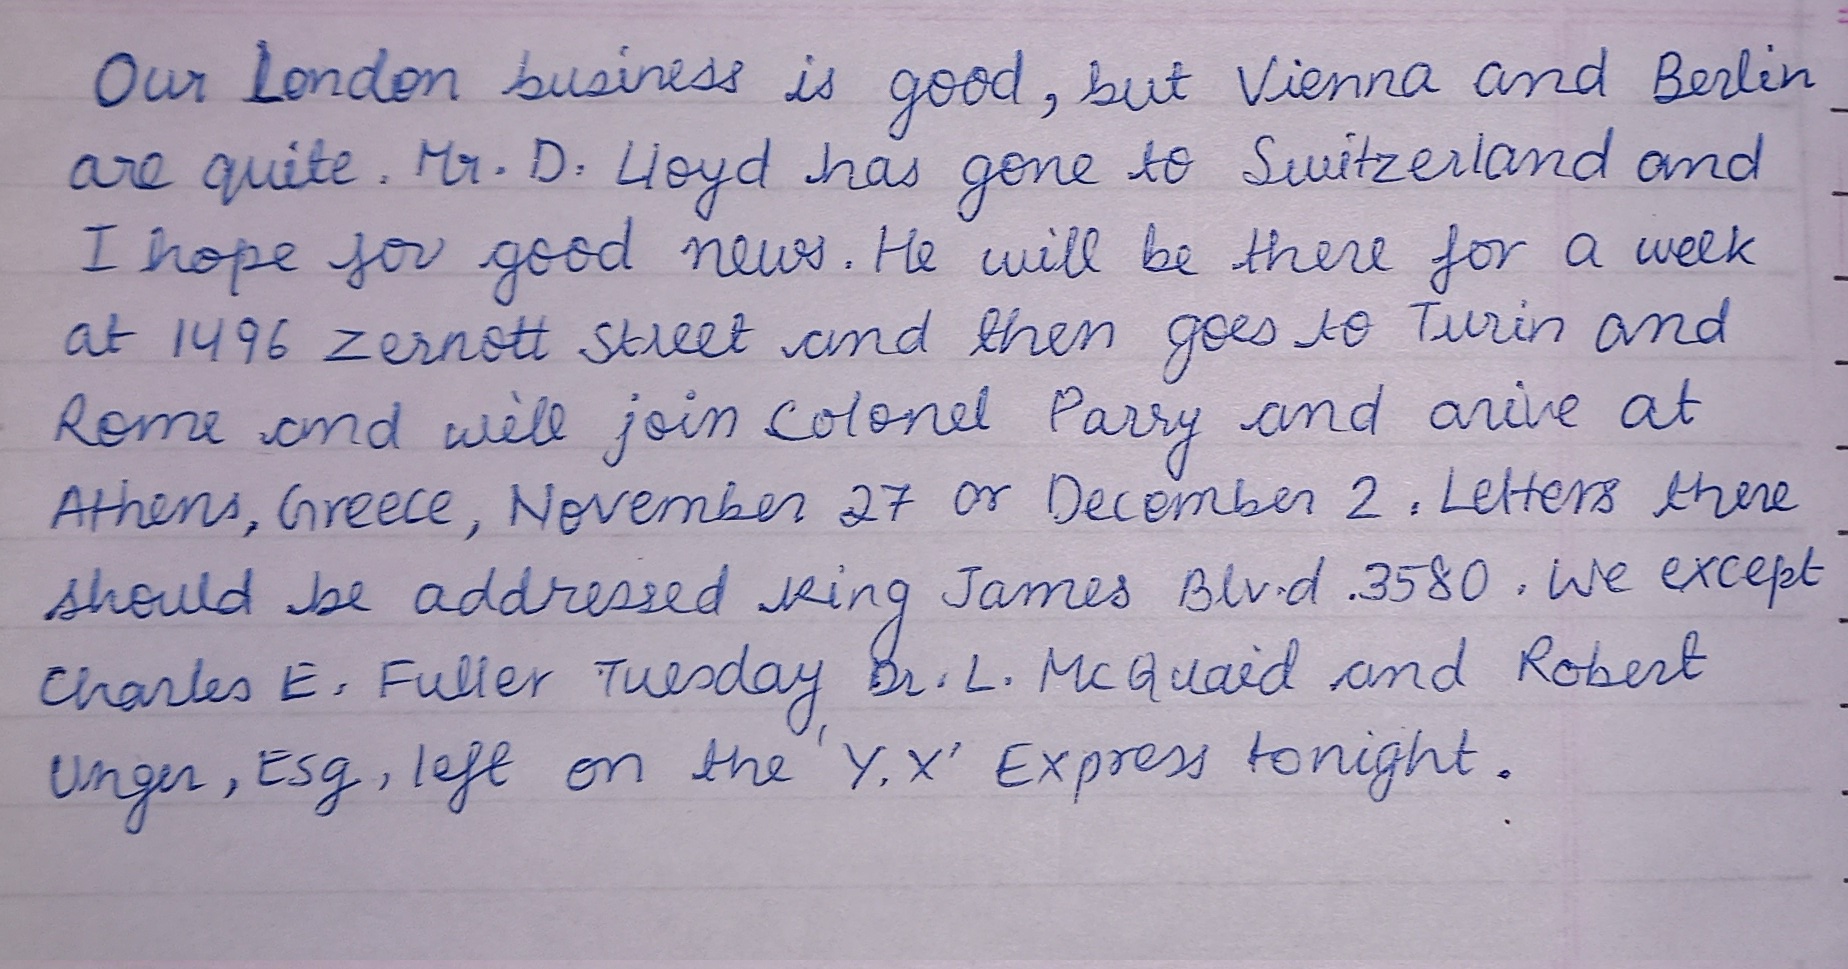 Our London business is good, but Vienna and Berlin
are quite. Mr. D. Lloyd has gone to Switzerland and
I hope for good news. He will be there for a week
at 1496 Zernott Street and then goes to Turin and
Rome and will join Colonel Parry and arive at
Athens, Greece, November 27 or December 2. Letters there
should be addressed King James Blv.d .3580. We except
Charles E. Fuller Tuesday Dr. L. McQuaid and Robert
Unger, Esg, left on the 'Y.X' Express tonight.